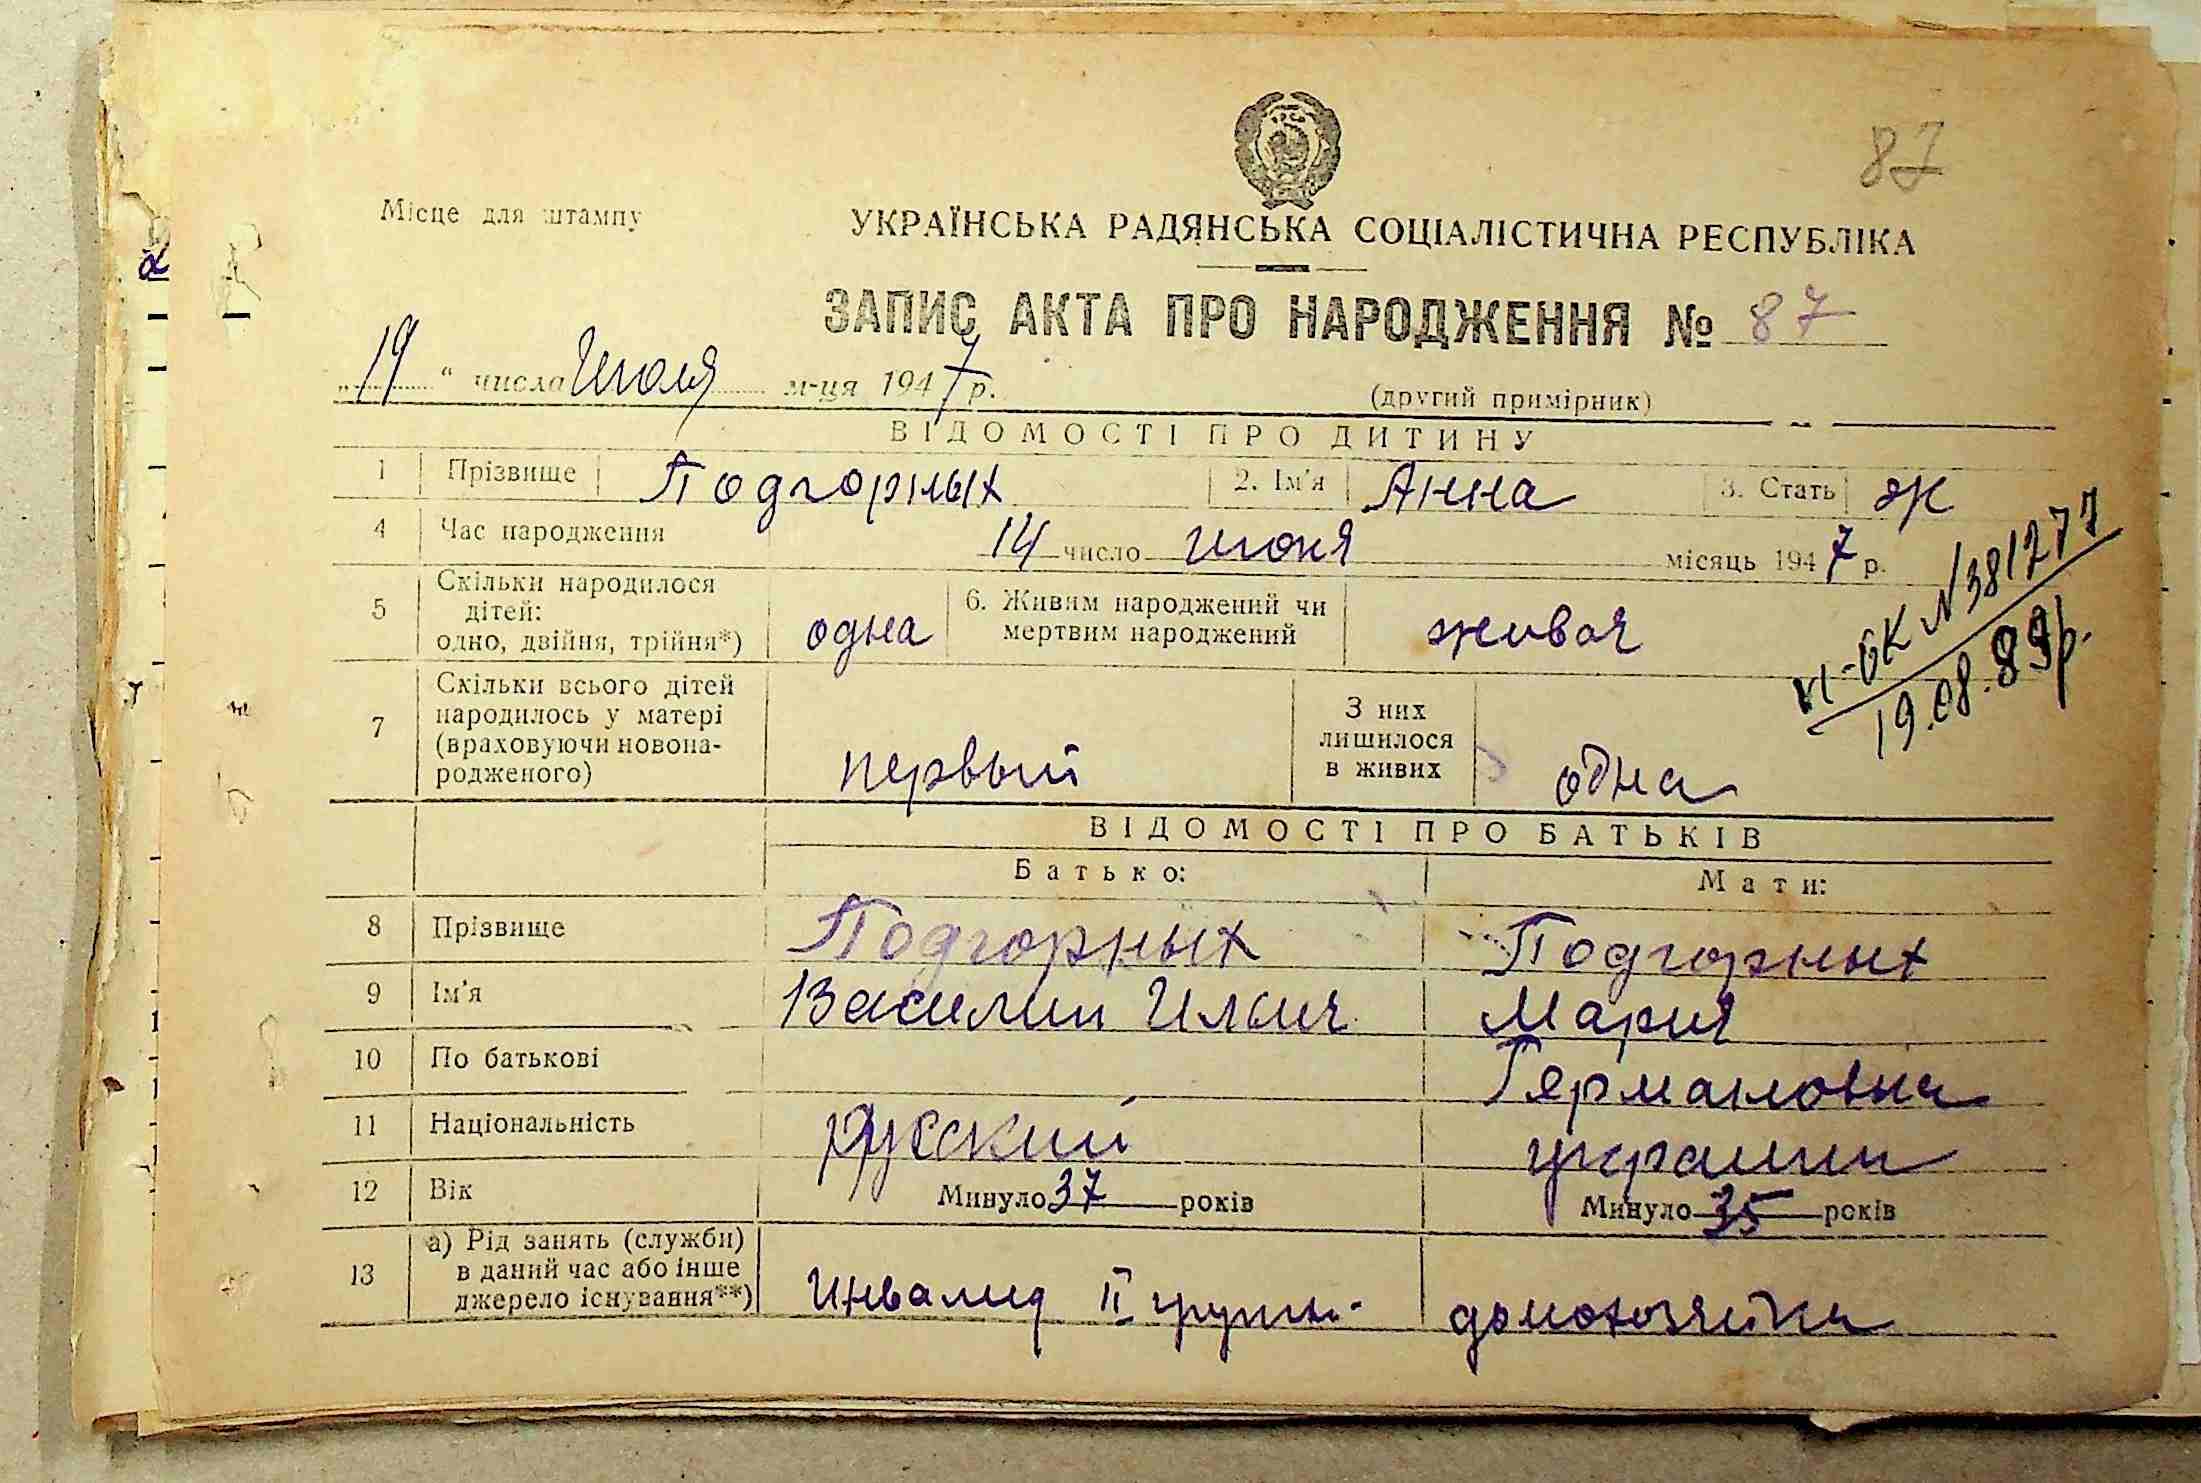 87
Місце для штампу
УКРАЇНСЬКА РАДЯНСЬКА СОЦІАЛІСТИЧНА РЕСПУБЛІКА
ЗАПИС АКТА ПРО НАРОДЖЕННЯ № 87
„19“ числа Июля м-ця 1947 р.
(другий примірник)
ВІДОМОСТІ ПРО ДИТИНУ
1 Прізвище Подгорных 2. Ім'я Анна 3. Стать ж
4 Час народження 14 число июня місяць 1947 р.
5 Скільки народилося
дітей:
одно, двійня, трійня*) одна 6. Живим народжений чи
мертвим народжений живая
VI-БК №381277
19.08.89р.
7 Скільки всього дітей
народилось у матері
(враховуючи новона-
родженого) первый
З них
лишилося
в живих одна
ВІДОМОСТІ ПРО БАТЬКІВ
Батько: Мати:
8 Прізвище Подгорных Подгорных
9 Ім'я Василий Ильич Мария
10 По батькові Германовна
11 Національність русский украинк
12 Вік Минуло 37 років Минуло 35 років
13 а) Рід занять (служби)
в даний час або інше
джерело існування**) Инвалид II групы домохозяйка